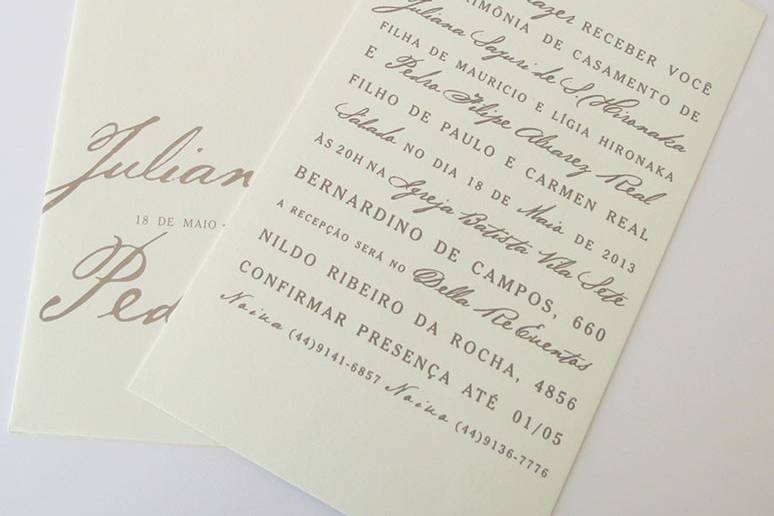 Julian
18 DE MAIO
Ped
prazer RECEBER VOCÊ
RIMÔNIA DE CASAMENTO DE
Juliana Sayuri de S. Hironaka
FILHA DE MAURICIO E LÍGIA HIRONAKA
E Pedro Filipe Alvarez Real
FILHO DE PAULO E CARMEN REAL
Sábado NO DIA 18 DE Maio DE 2013
ÀS 20H NA Igreja Batista Vila Sete
BERNARDINO DE CAMPOS, 660
A RECEPÇÃO SERÁ NO Della Rê Eventos
NILDO RIBEIRO DA ROCHA, 4856
CONFIRMAR PRESENÇA ATÉ 01/05
Noiva (44)9141-6857 Noiva (44)9136-7776